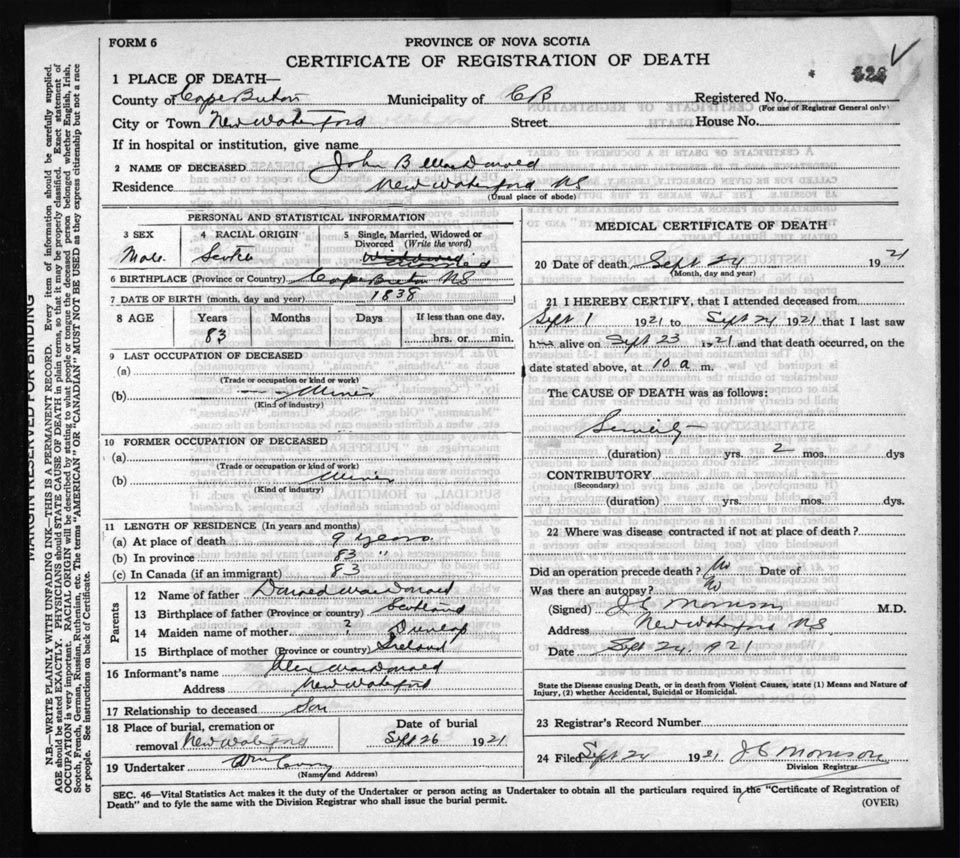 FORM 6
PROVINCE OF NOVA SCOTIA
CERTIFICATE OF REGISTRATION OF DEATH
1 PLACE OF DEATH—
County of Cape Breton Municipality of CB Registered No.
(For use of Registrar General only)
City or Town New Waterford Street House No.
If in hospital or institution, give name
2 NAME OF DECEASED John B MacDonald
Residence New Waterford NS
(Usual place of abode)
PERSONAL AND STATISTICAL INFORMATION
3 SEX 4 RACIAL ORIGIN 5 Single, Married, Widowed or Divorced (Write the word)
Male Scotch Widowed
6 BIRTHPLACE (Province or Country) Cape Breton NS
7 DATE OF BIRTH (month, day and year) 1838
8 AGE Years Months Days If less than one day,
83 hrs. or min.
9 LAST OCCUPATION OF DECEASED
(a)
(Trade or occupation or kind or work)
(b) Miner
(Kind of industry)
10 FORMER OCCUPATION OF DECEASED
(a)
(Trade or occupation or kind of work)
(b) Miner
(Kind of industry)
11 LENGTH OF RESIDENCE (In years and months)
(a) At place of death 9 years
(b) In province 83 "
(c) In Canada (if an immigrant) 83
Parents
12 Name of father Donald MacDonald
13 Birthplace of father (Province or country) Scotland
14 Maiden name of mother ? Dunlap
15 Birthplace of mother (Province or country) Ireland
16 Informant's name Alex MacDonald
Address New Waterford
17 Relationship to deceased Son
18 Place of burial, cremation or removal New Waterford Date of burial Sept 26 1921
19 Undertaker
(Name and Address)
MEDICAL CERTIFICATE OF DEATH
20 Date of death Sept 24 1921
(Month, day and year)
21 I HEREBY CERTIFY, that I attended deceased from
Sept 1 1921 to Sept 24 1921 that I last saw
him alive on Sept 23 1921 and that death occurred, on the
date stated above, at 10 a m.
The CAUSE OF DEATH was as follows:
Senility
(duration) yrs. 2 mos. dys
CONTRIBUTORY
(Secondary)
(duration) yrs. mos. dys.
22 Where was disease contracted if not at place of death?
Did an operation precede death? No Date of
Was there an autopsy? No
(Signed) J S Morrison M.D.
Address New Waterford NS
Date Sept 24 1921
State the Disease causing Death, or in death from Violent Causes, state (1) Means and Nature of
Injury, (2) whether Accidental, Suicidal or Homicidal.
23 Registrar's Record Number
24 Filed Sept 24 1921 J S Morrison
Division Registrar
SEC. 46—Vital Statistics Act makes it the duty of the Undertaker or person acting as Undertaker to obtain all the particulars required in the "Certificate of Registration of
Death" and to fyle the same with the Division Registrar who shall issue the burial permit.
(OVER)
MARGIN RESERVED FOR BINDING
N.B.—WRITE PLAINLY WITH UNFADING INK—THIS IS A PERMANENT RECORD. Every item of information should be carefully supplied.
AGE should be stated EXACTLY. PHYSICIANS should STATE CAUSE OF DEATH in plain terms, so that it may be properly classified. Exact statement of
OCCUPATION is very important. RACIAL ORIGIN will be described by stating to what people or tongue the deceased person belonged whether English, Irish,
Scotch, French, German, Russian, Ruthenian, etc. The terms "AMERICAN" OR "CANADIAN" MUST NOT BE USED as they express citizenship but not a race
or people. See instructions on back of Certificate.